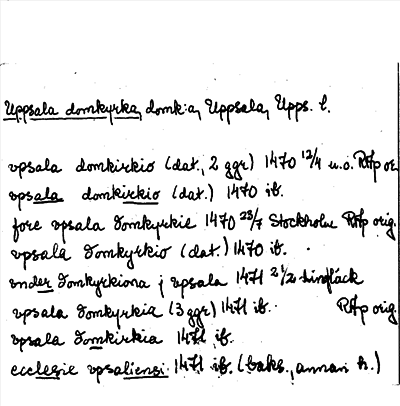 Uppsala domkyrka, domk:a, Uppsala, Upps. l.
vpsala domkirkio (dat., 2 ggr) 1470 12/4 u.o. RAp or.
vpsala domkirkio (dat.) 1470 ib.
fore vpsala domkyrkie 1470 23/7 Stockholm RAp orig.
vpsala domkyrkio (dat.) 1470 ib.
vnder domkyrkiona j vpsala 1471 2/1
vpsala domkyrkia (3 ggr) 1471 ib. RAp orig.
vpsala domkirkia 1471 ib.
ecclesie vpsaliensi 1471 ib. (baks., annan h.)